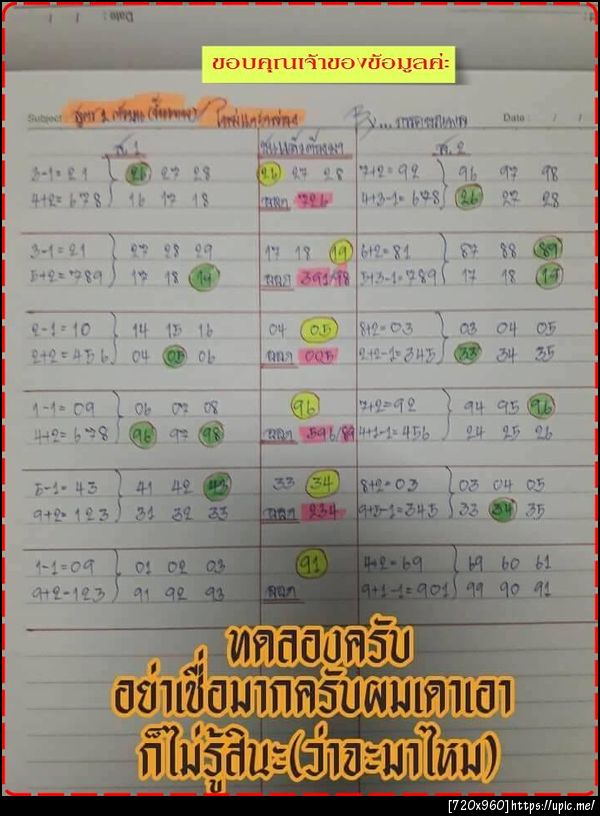 Date : / /
ขอบคุณเจ้าของข้อมูลค่ะ
Subject : สูตร 2 Date : / /
ส.1 ส.2
3-1=21 26 27 28 26 27 28 7+2=92 96 97 98
4+2=678 16 17 18 ผลฯ 726 4+3-1=678 26 27 28
3-1=21 27 28 29 17 18 19 6+2=81 87 88 89
5+2=789 17 18 19 ผลฯ 391/98 5+3-1=789 17 18 19
2-1=10 14 15 16 04 05 8+2=03 03 04 05
2+2=456 04 05 06 ผลฯ 005 2+2-1=345 33 34 35
1-1=09 06 07 08 96 7+2=92 94 95 96
4+2=678 96 97 98 ผลฯ 596/89 4+1-1=456 24 25 26
5-1=43 41 42 43 33 34 8+2=03 03 04 05
9+2=123 31 32 33 ผลฯ 234 9+5-1=345 33 34 35
1-1=09 01 02 03 91 4+2=69 69 60 61
9+2=123 91 92 93 ผลฯ 9+1-1=901 99 90 91
ทดลองครับ
อย่าเชื่อมากครับผมเดาเอา
ก็ไม่รู้สินะ(ว่าจะมาไหม)
[720x960]https://upic.me/